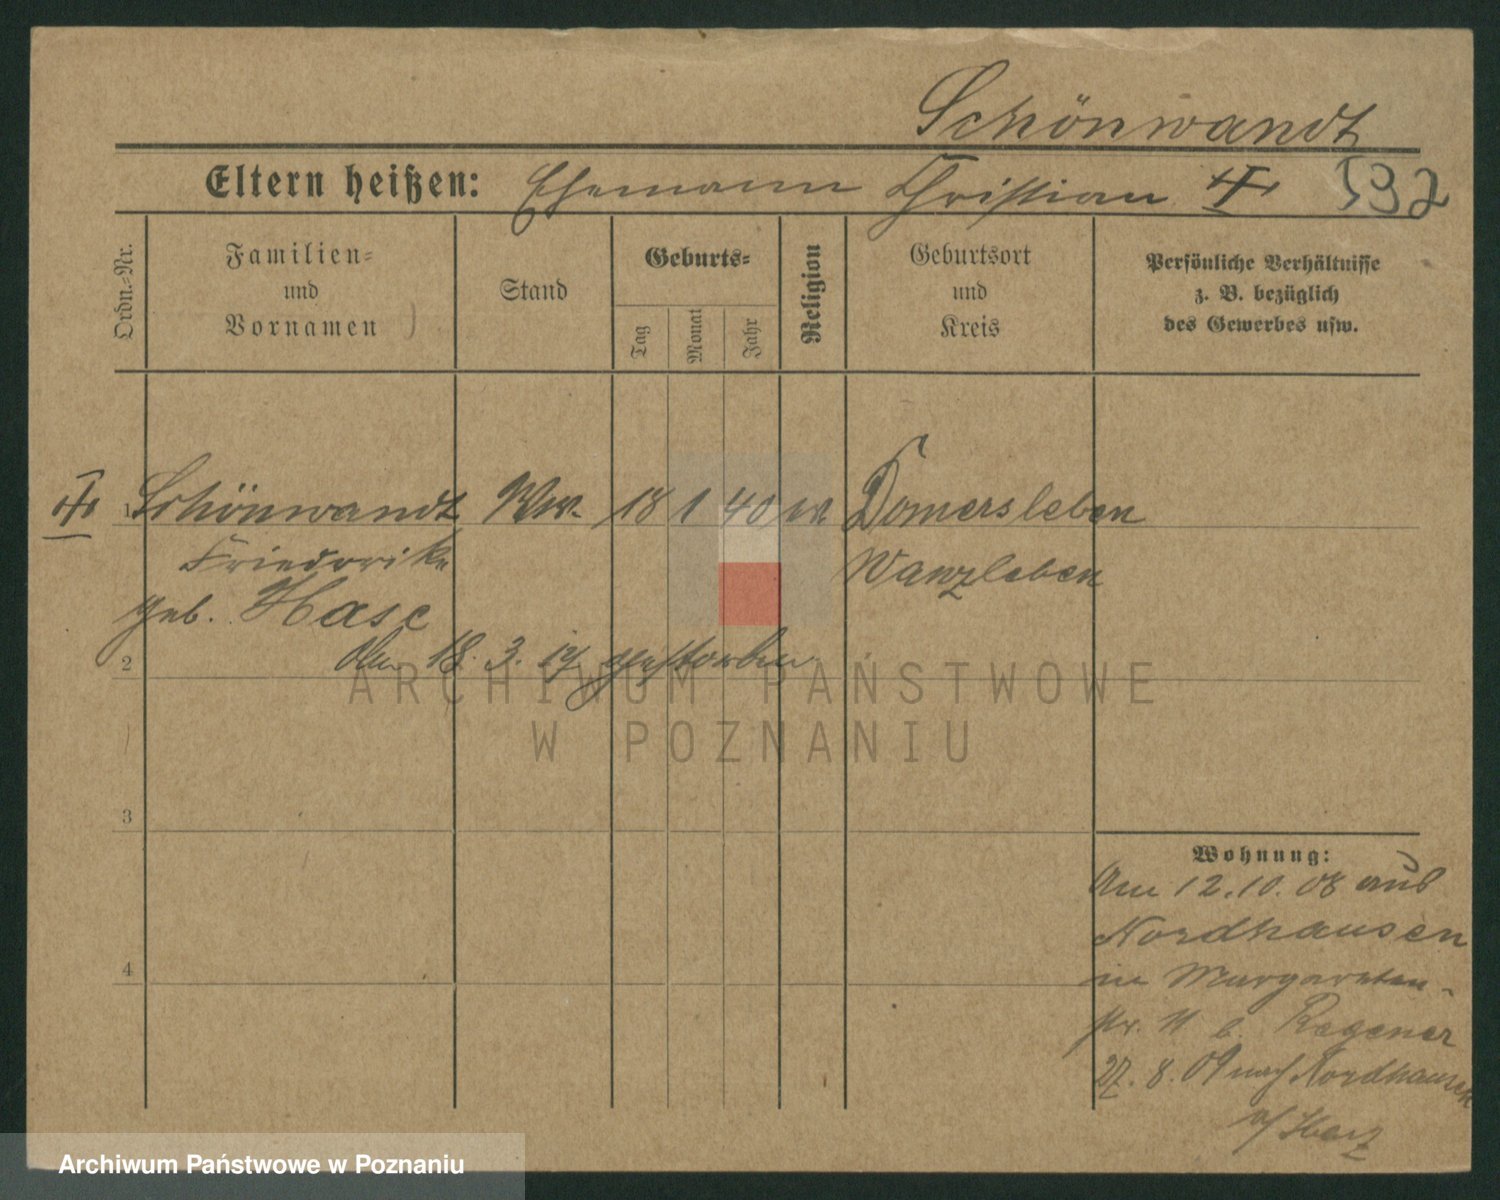 Schönwandt
Eltern heißen: Ehemann Christian 532
Ordn.-Nr.
Familien-
und
Vornamen
Stand
Geburts-
Tag
Monat
Jahr
Religion
Geburtsort
und
Kreis
Persönliche Verhältnisse
z. B. bezüglich
des Gewerbes usw.
1 Schönwandt Ww. 18 1 40 Domersleben
Friederike Wanzleben
geb. Hase
2 Am 18. 3. 19 gestorben
ARCHIWUM PAŃSTWOWE
W POZNANIU
3
Wohnung:
Am 12.10.08 aus
Nordhausen
4
in Margareten-
str. 11 b. Regener
27. 8. 09 nach Nordhausen
a/Harz
Archiwum Państwowe w Poznaniu